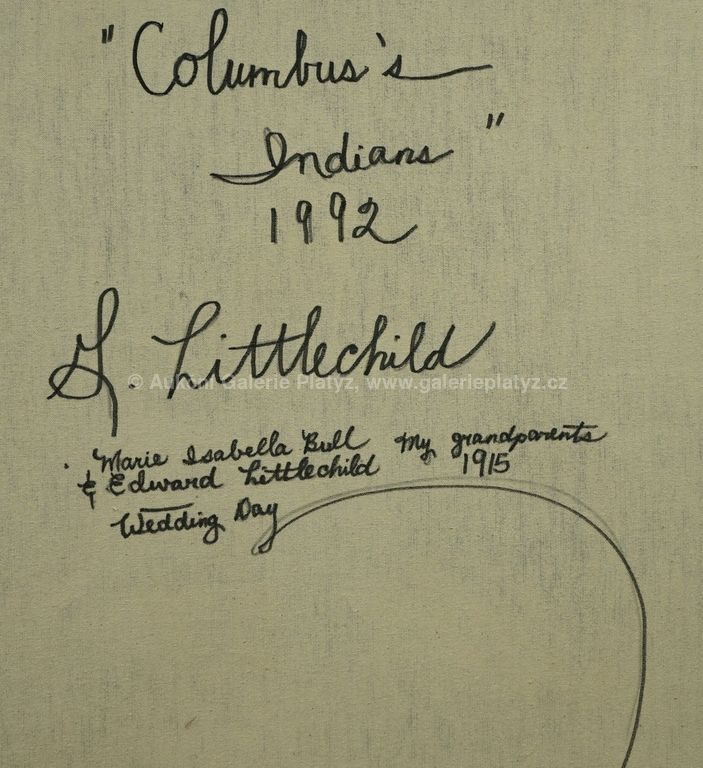 "Columbus's
Indians"
1992
G. Littlechild
© Aukční Galerie Platýz, www.galerieplatyz.cz
Marie Isabella Bull My grandparents
& Edward Littlechild 1915
Wedding Day